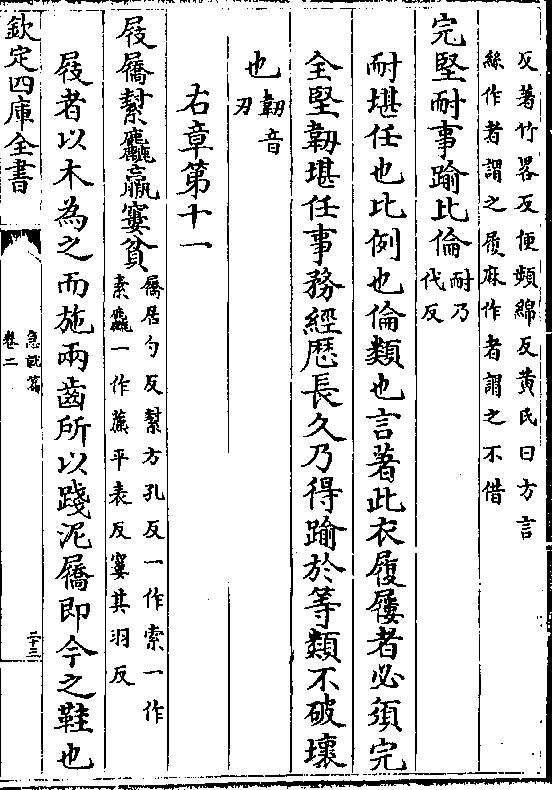 反著竹畧反便頻綿反黄氏曰方言
絲作者謂之履麻作者謂之不借
完堅耐事踰比倫耐乃
代反
耐堪任也比例也倫類也言著此衣履屨者必須完
全堅韌堪任事務經歴長久乃得踰於等類不破壞
也韌音
刃
右章第十一
屐屩䋽麤羸窶貧屩居勺反䋽方孔反一作索一作
素麤一作藨平表反窶其羽反
屐者以木為之而施兩齒所以踐泥屩即今之鞋也
欽定四庫全書
急就篇
卷二
二十三